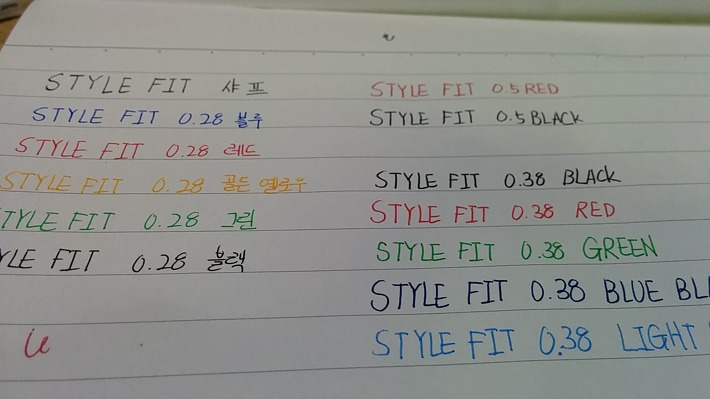 STYLE FIT 샤프
STYLE FIT 0.28 블루
STYLE FIT 0.28 레드
STYLE FIT 0.28 골든 옐로우
TYLE FIT 0.28 그린
YLE FIT 0.28 블랙
STYLE FIT 0.5 RED
STYLE FIT 0.5 BLACK
STYLE FIT 0.38 BLACK
STYLE FIT 0.38 RED
STYLE FIT 0.38 GREEN
STYLE FIT 0.38 BLUE BL
STYLE FIT 0.38 LIGHT